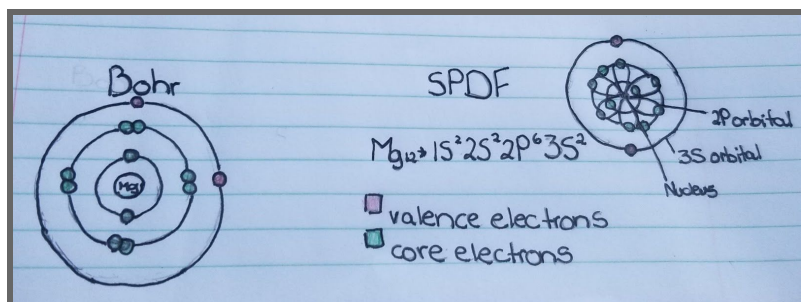 Bohr
Mg
SPDF
Mg12→ 1S²2S²2P⁶3S²
valence electrons
core electrons
2P orbital
3S orbital
Nucleus